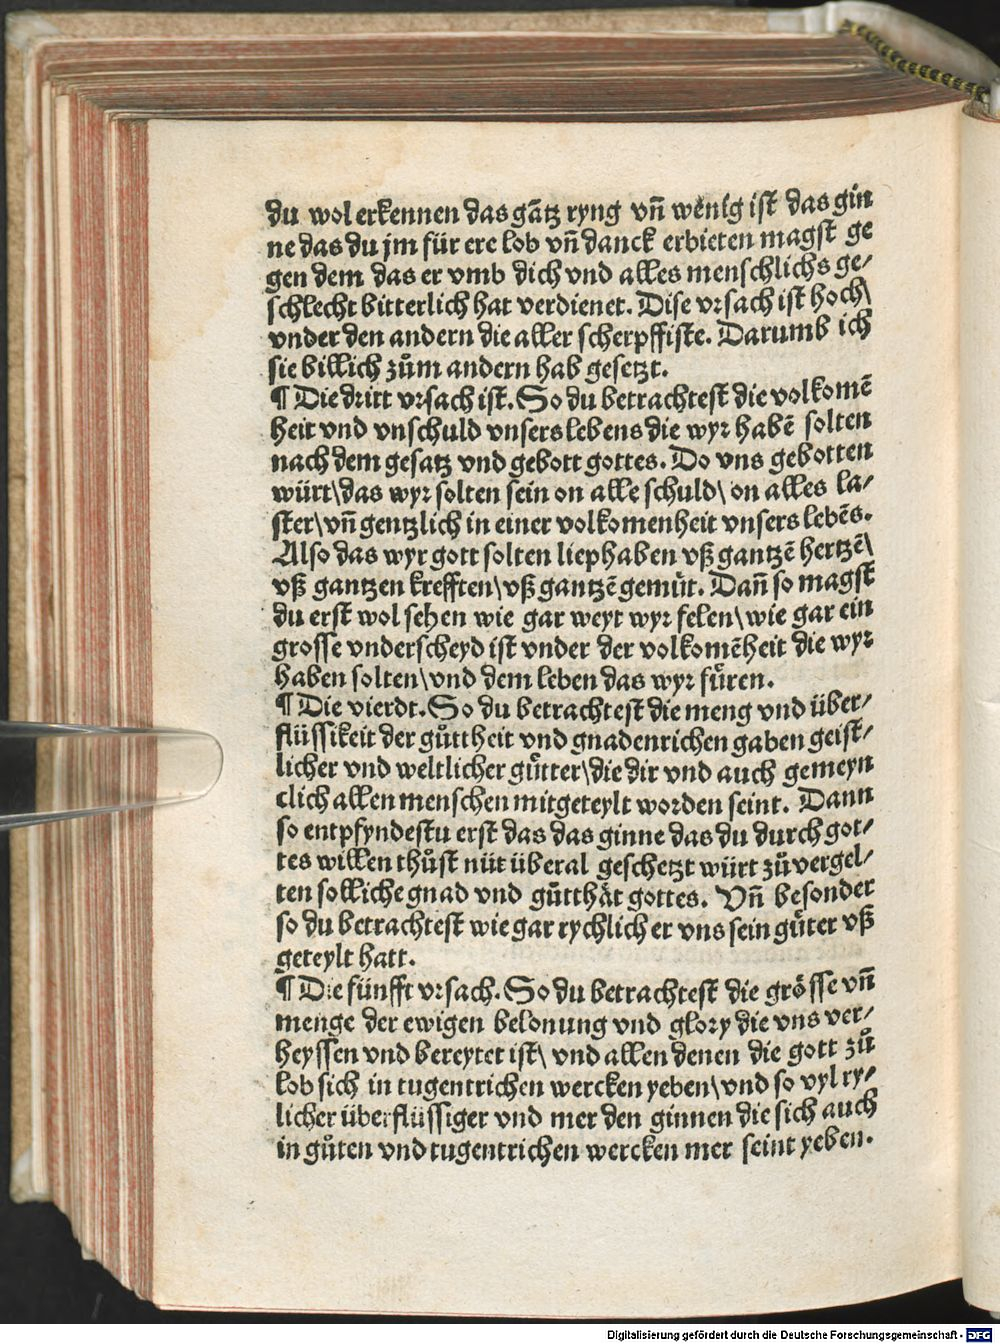 du wol erkennen das gãtz ryng vñ wẽnig ist das gin
ne das du jm für ere lob vñ danck erbieten magst ge
gen dem das er vmb dich vnd alles menschlichs ge⸗
schlecht bitterlich hat verdienet. Dise vrsach ist hoch\
vnder den andern die aller scherpffiste. Darumb ich
sie billich zům andern hab gesetzt.
¶ Die dritt vrsach ist. So du betrachtest die volkomẽ
heit vnd vnschuld vnsers lebens die wyr habẽ solten
nach dem gesatz vnd gebott gottes. Do vns gebotten
würt\das wyr solten sein on alle schuld\ on alles la⸗
ster\vñ gentzlich in einer volkomenheit vnsers lebẽs.
Also das wyr gott solten liephaben vß gantzẽ hertzẽ\
vß gantzen krefften\vß gantzẽ gemüt. Dañ so magst
du erst wol sehen wie gar weyt wyr felen\wie gar ein
grosse vnderscheyd ist vnder der volkomẽheit die wyr
haben solten\vnd dem leben das wyr fuͤren.
¶ Die vierdt. So du betrachtest die meng vnd über⸗
flüssikeit der gůttheit vnd gnadenrichen gaben geist⸗
licher vnd weltlicher guͤtter\die dir vnd auch gemeyn
clich allen menschen mitgeteylt worden seint. Dann
so entpfyndestu erst das das ginne das du durch got⸗
tes willen thůst nüt überal geschetzt würt zů vergel⸗
ten solliche gnad vnd gůtthaͤt gottes. Vñ besonder
so du betrachtest wie gar rychlich er vns sein guͤter vß
geteylt hatt.
¶ Die fünfft vrsach. So du betrachtest die groͤsse vñ
menge der ewigen belonung vnd glory die vns ver⸗
heyssen vnd bereytet ist\ vnd allen denen die gott zů
lob sich in tugentrichen wercken yeben\vnd so vyl ry⸗
licher überflüssiger vnd mer den ginnen die sich auch
in gůten vnd tugentrichen wercken mer seint yeben.
Digitalisierung gefördert durch die Deutsche Forschungsgemeinschaft - DFG